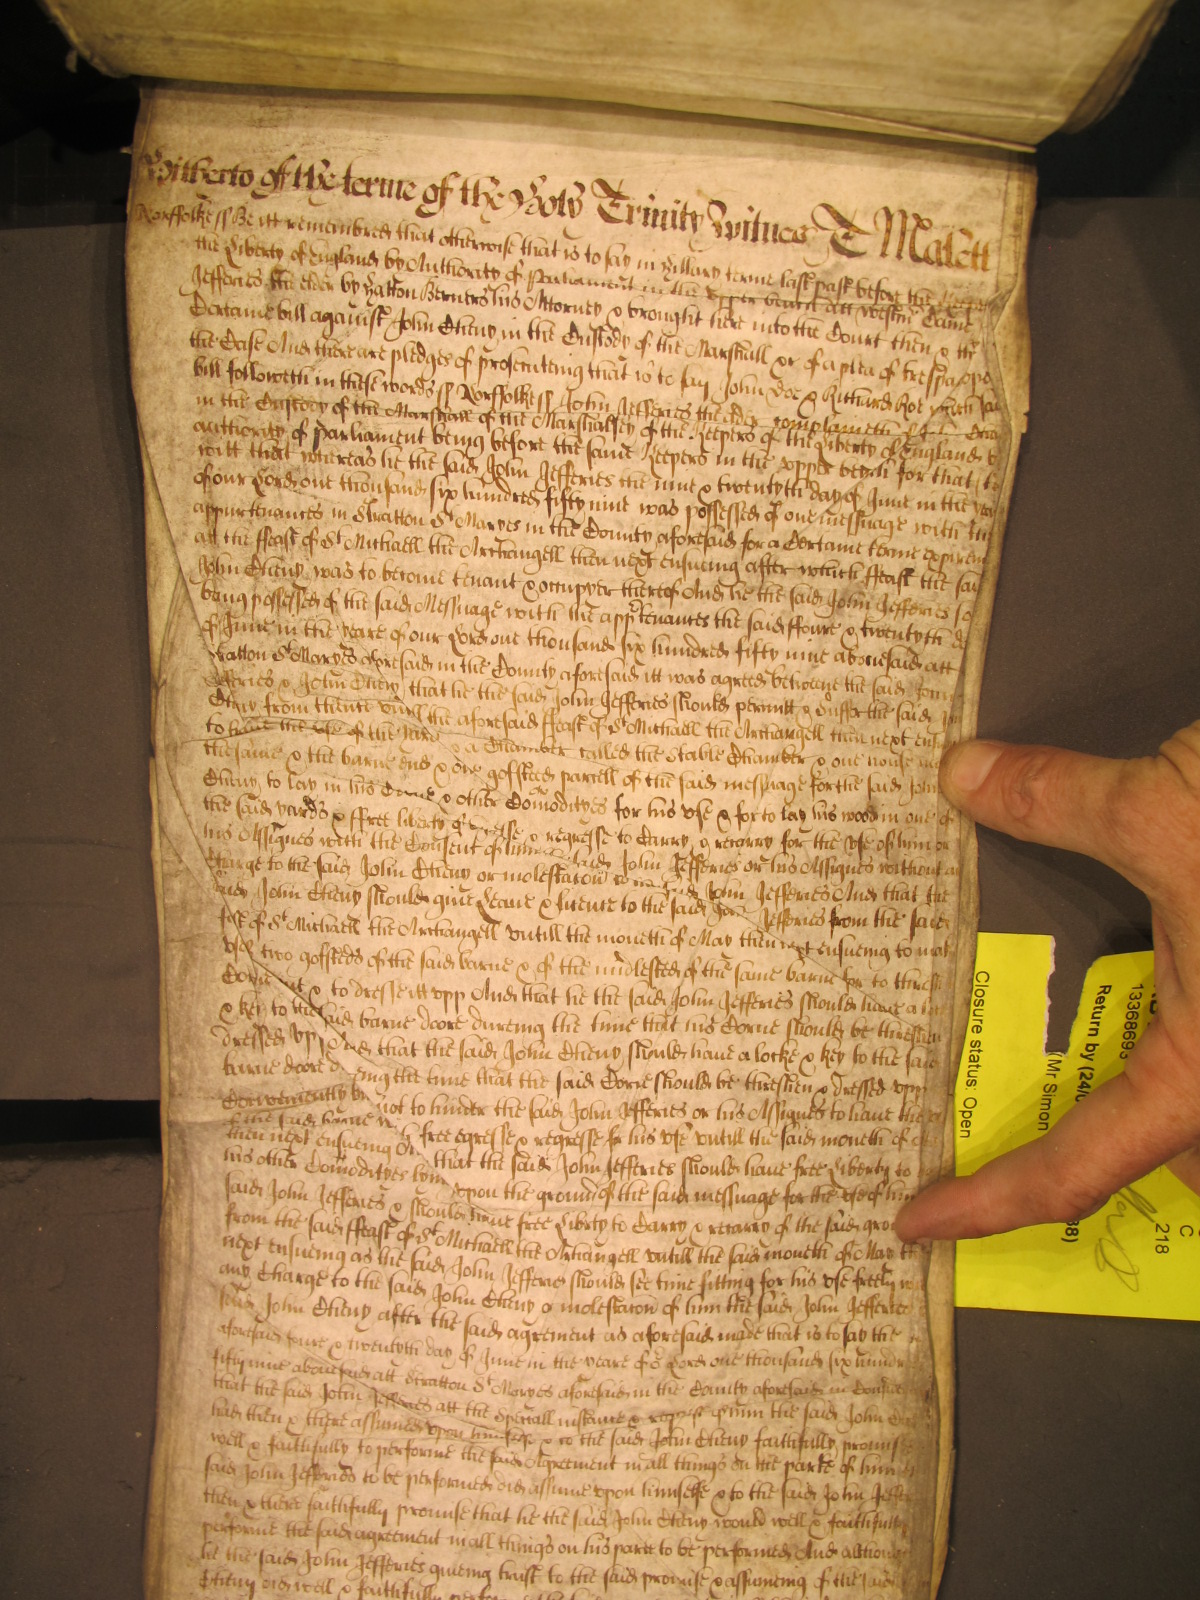 Hitherto of the terme of the Holy Trinity Witnes T Malett
Norffolke ss Be itt remembred that otherwise that is to say in Hillary terme last past before the Keepers
the Liberty of England by Authority of Parliament in the upper bench att Westmr Came
Jefferies the elder by Hatton Berners his Attorney & brought here into the Court then & th
Certaine bill against John Cheny in the Custody of the Marshall &c of a plea of trespasse
the Case And there are pledges of prosecuting that is to say John Doe & Richard Roe which said
bill followeth in these words ss Norffolke ss John Jefferies the elder complaineth of John Cheny
in the Custody of the Marshall of the Marshalsey of the Keepers of the Liberty of England
authority of Parliament being before the same Keepers in the upper bench for that to
witt that whereas he the said John Jefferies the nine & twentyth day of June in the yeare
of our Lord one thousand six hundred fifty nine was possessed of one messuage with the
appurtenances in Stratton St Maryes in the County aforesaid for a Certaine terme expireing
att the ffeast of St Michaell the Archangell then next ensueing after which ffeast the said
John Cheny was to become tenant & occupyer thereof And he the said John Jefferies so
being possessed of the said Messuage with the apptenances the said ffoure & twentyth
of June in the yeare of our Lord one thousand six hundred fifty nine abovesaid att
Stratton St Maryes aforesaid in the County aforesaid itt was agreed betweene the said John
Jefferies & John Cheny that he the said John Jefferies should permitt & suffer the said John
Cheny from thence untill the aforesaid ffeast of St Michaell the Archangell then next ensueing
to have the use of the yard & a Chamber called the Stable Chamber & one house
the same & the barne end & one gofsteed parcell of the said messuage for the said John
Cheny to lay in his Corne & other Comodityes for his use & for to lay his wood in one of
the said yards & ffree liberty of egresse & regresse to Carry & recarry for the use of him or
his Assignes with the Consent of him the said John Jefferies or his Assignes without any
Charge to the said John Cheny or molestacon to the said John Jefferies And that the
said John Cheny should give Leave & licence to the said John Jefferies from the said
feast of St Michaell the Archangell untill the moneth of May then next ensueing to make
use two gofsteds of the said barne & of the midlested of the same barne for to thresh
Corne in & to dresse itt upp And that he the said John Jefferies should have a locke
& key to the said barne doore dureing the time that his Corne should be threshen
dressed upp And that the said John Cheny should have a locke & key to the said
barne doore dureing the time that the said Corne should be threshen & dressed upp
Conveniently & not to hinder the said John Jefferies or his Assignes to have the
of the said barne with free egresse & regresse for his use untill the said moneth of
then next ensueing And that the said John Jefferies should have free Liberty to
his other Comodityes lying upon the ground of the said messuage for the Use of him
said John Jefferies & should have free Liberty to Carry & recarry of the said ground
from the said ffeast of St Michaell the Archangell untill the said moneth of May then
next ensueing as he the said John Jefferies should see time fitting for his use freely
any Charge to the said John Cheny or molestacon of him the said John Jefferies
said John Cheny after the said agrement as aforesaid made that is to say the
aforesaid foure & twentyth day of June in the yeare of or Lord one thousand six hundred
fifty nine abovesaid att Stratton St Maryes aforesaid in the County aforesaid in Consideracon
that the said John Jefferies att the Speciall instance & request of him the said John Cheny
had then & there assumed upon himselfe & to the said John Cheny faithfully promised
well & faithfully to performe the said Agreement in all things on the parte of him the
said John Jefferies to be performed did assume upon himselfe & to the said John Jefferies
then & there faithfully promise that he the said John Cheny would well & faithfully
performe the said agreement in all things on his parte to be performed And although
he the said John Jefferies giveing trust to the said promise & assumeing of the said
Cheny did well & faithfully performe
Closure status: Open
(Mr Simon
Return by (24/0
13368693
C
218